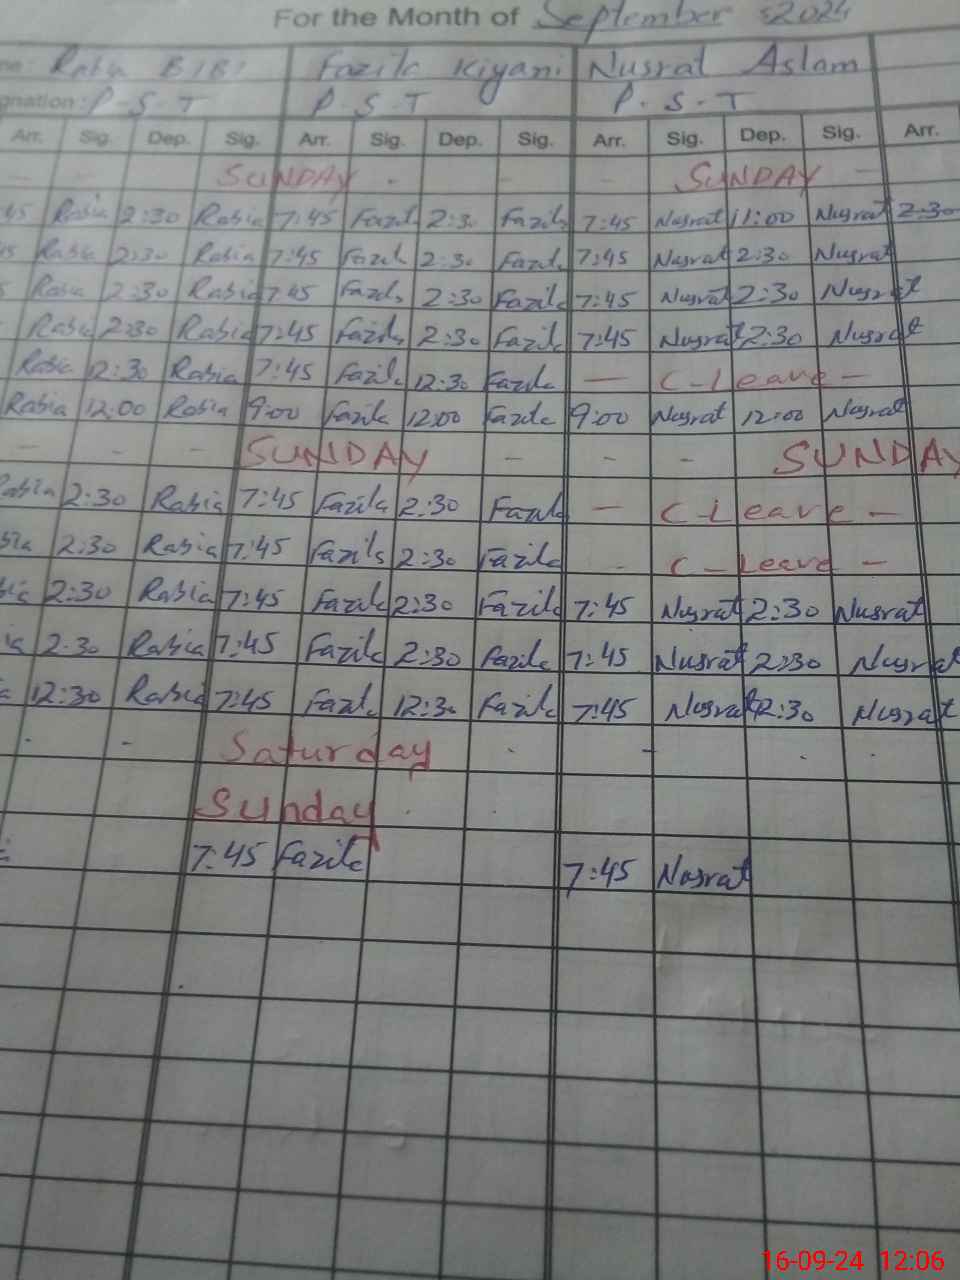 For the Month of September 2024
Rabia BIBI Fazila Kiyani Nusrat Aslam
gnation: P-S-T P-S-T P-S-T
Arr. Sig. Dep. Sig. Arr. Sig. Dep. Sig. Arr. Sig. Dep. Sig. Arr.
- - SUNDAY - - - SUNDAY -
45 Rabia 2:30 Rabia 7:45 Fazila 2:30 Fazila 7:45 Nusrat 11:00 Nusrat 2:30
45 Rabia 2:30 Rabia 7:45 Fazila 2:30 Fazila 7:45 Nusrat 2:30 Nusrat
Rabia 2:30 Rabia 7:45 Fazila 2:30 Fazila 7:45 Nusrat 2:30 Nusrat
Rabia 2:30 Rabia 7:45 Fazila 2:30 Fazila 7:45 Nusrat 2:30 Nusrat
Rabia 12:30 Rabia 7:45 Fazila 12:30 Fazila - C-Leave -
Rabia 12:00 Rabia 9:00 Fazila 12:00 Fazila 9:00 Nusrat 12:00 Nusrat
- - - SUNDAY - - - SUNDAY
Rabia 2:30 Rabia 7:45 Fazila 2:30 Fazila - C-Leave -
bia 2:30 Rabia 7:45 Fazila 2:30 Fazila - C-Leave -
bia 2:30 Rabia 7:45 Fazila 2:30 Fazila 7:45 Nusrat 2:30 Nusrat
ia 2:30 Rabia 7:45 Fazila 2:30 Fazila 7:45 Nusrat 2:30 Nusrat
a 12:30 Rabia 7:45 Fazila 12:30 Fazila 7:45 Nusrat 12:30 Nusrat
- - Saturday - - - -
Sunday
7:45 Fazila 7:45 Nusrat
16-09-24 12:06